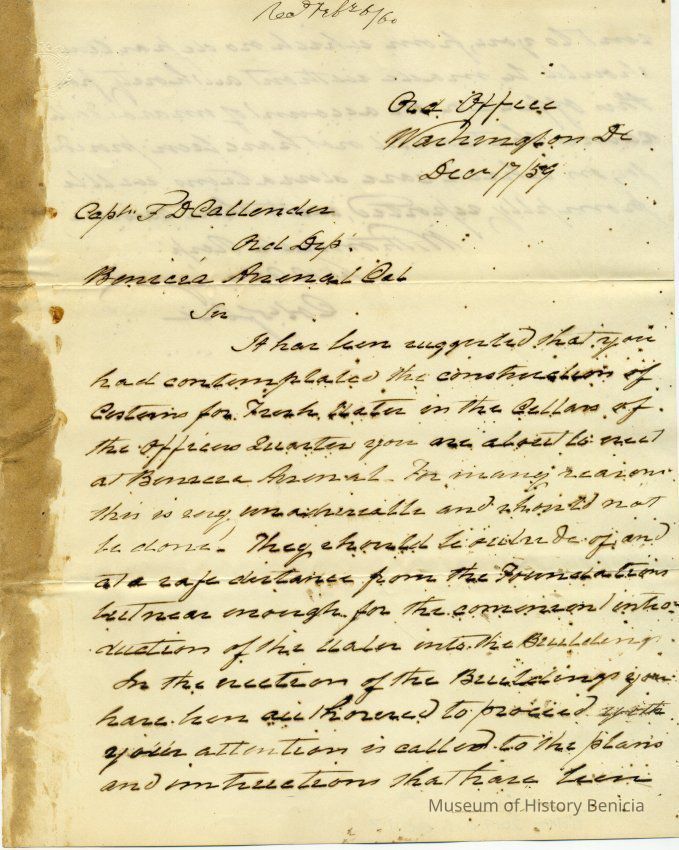 Recd Feb 6/60
Ord Office
Washington Dc
Decr 17/59
Captn F D Callender
Ord Dep.
Benicia Arsenal Cal
Sir
It has been suggested that you
had contemplated the construction of
Cisterns for Fresh Water in the Cellars of
the Officers Quarters you are about to erect
at Benicia Arsenal. For many reasons
this is very unadviseable and should not
be done. They should be outside of, and
at a safe distance from the Foundations
but near enough for the convenient intro-
duction of the Water into the Buildings.
In the erection of the Buildings you
have been authorized to proceed with
your attention is called to the plans
and instructions that have been
Museum of History Benicia